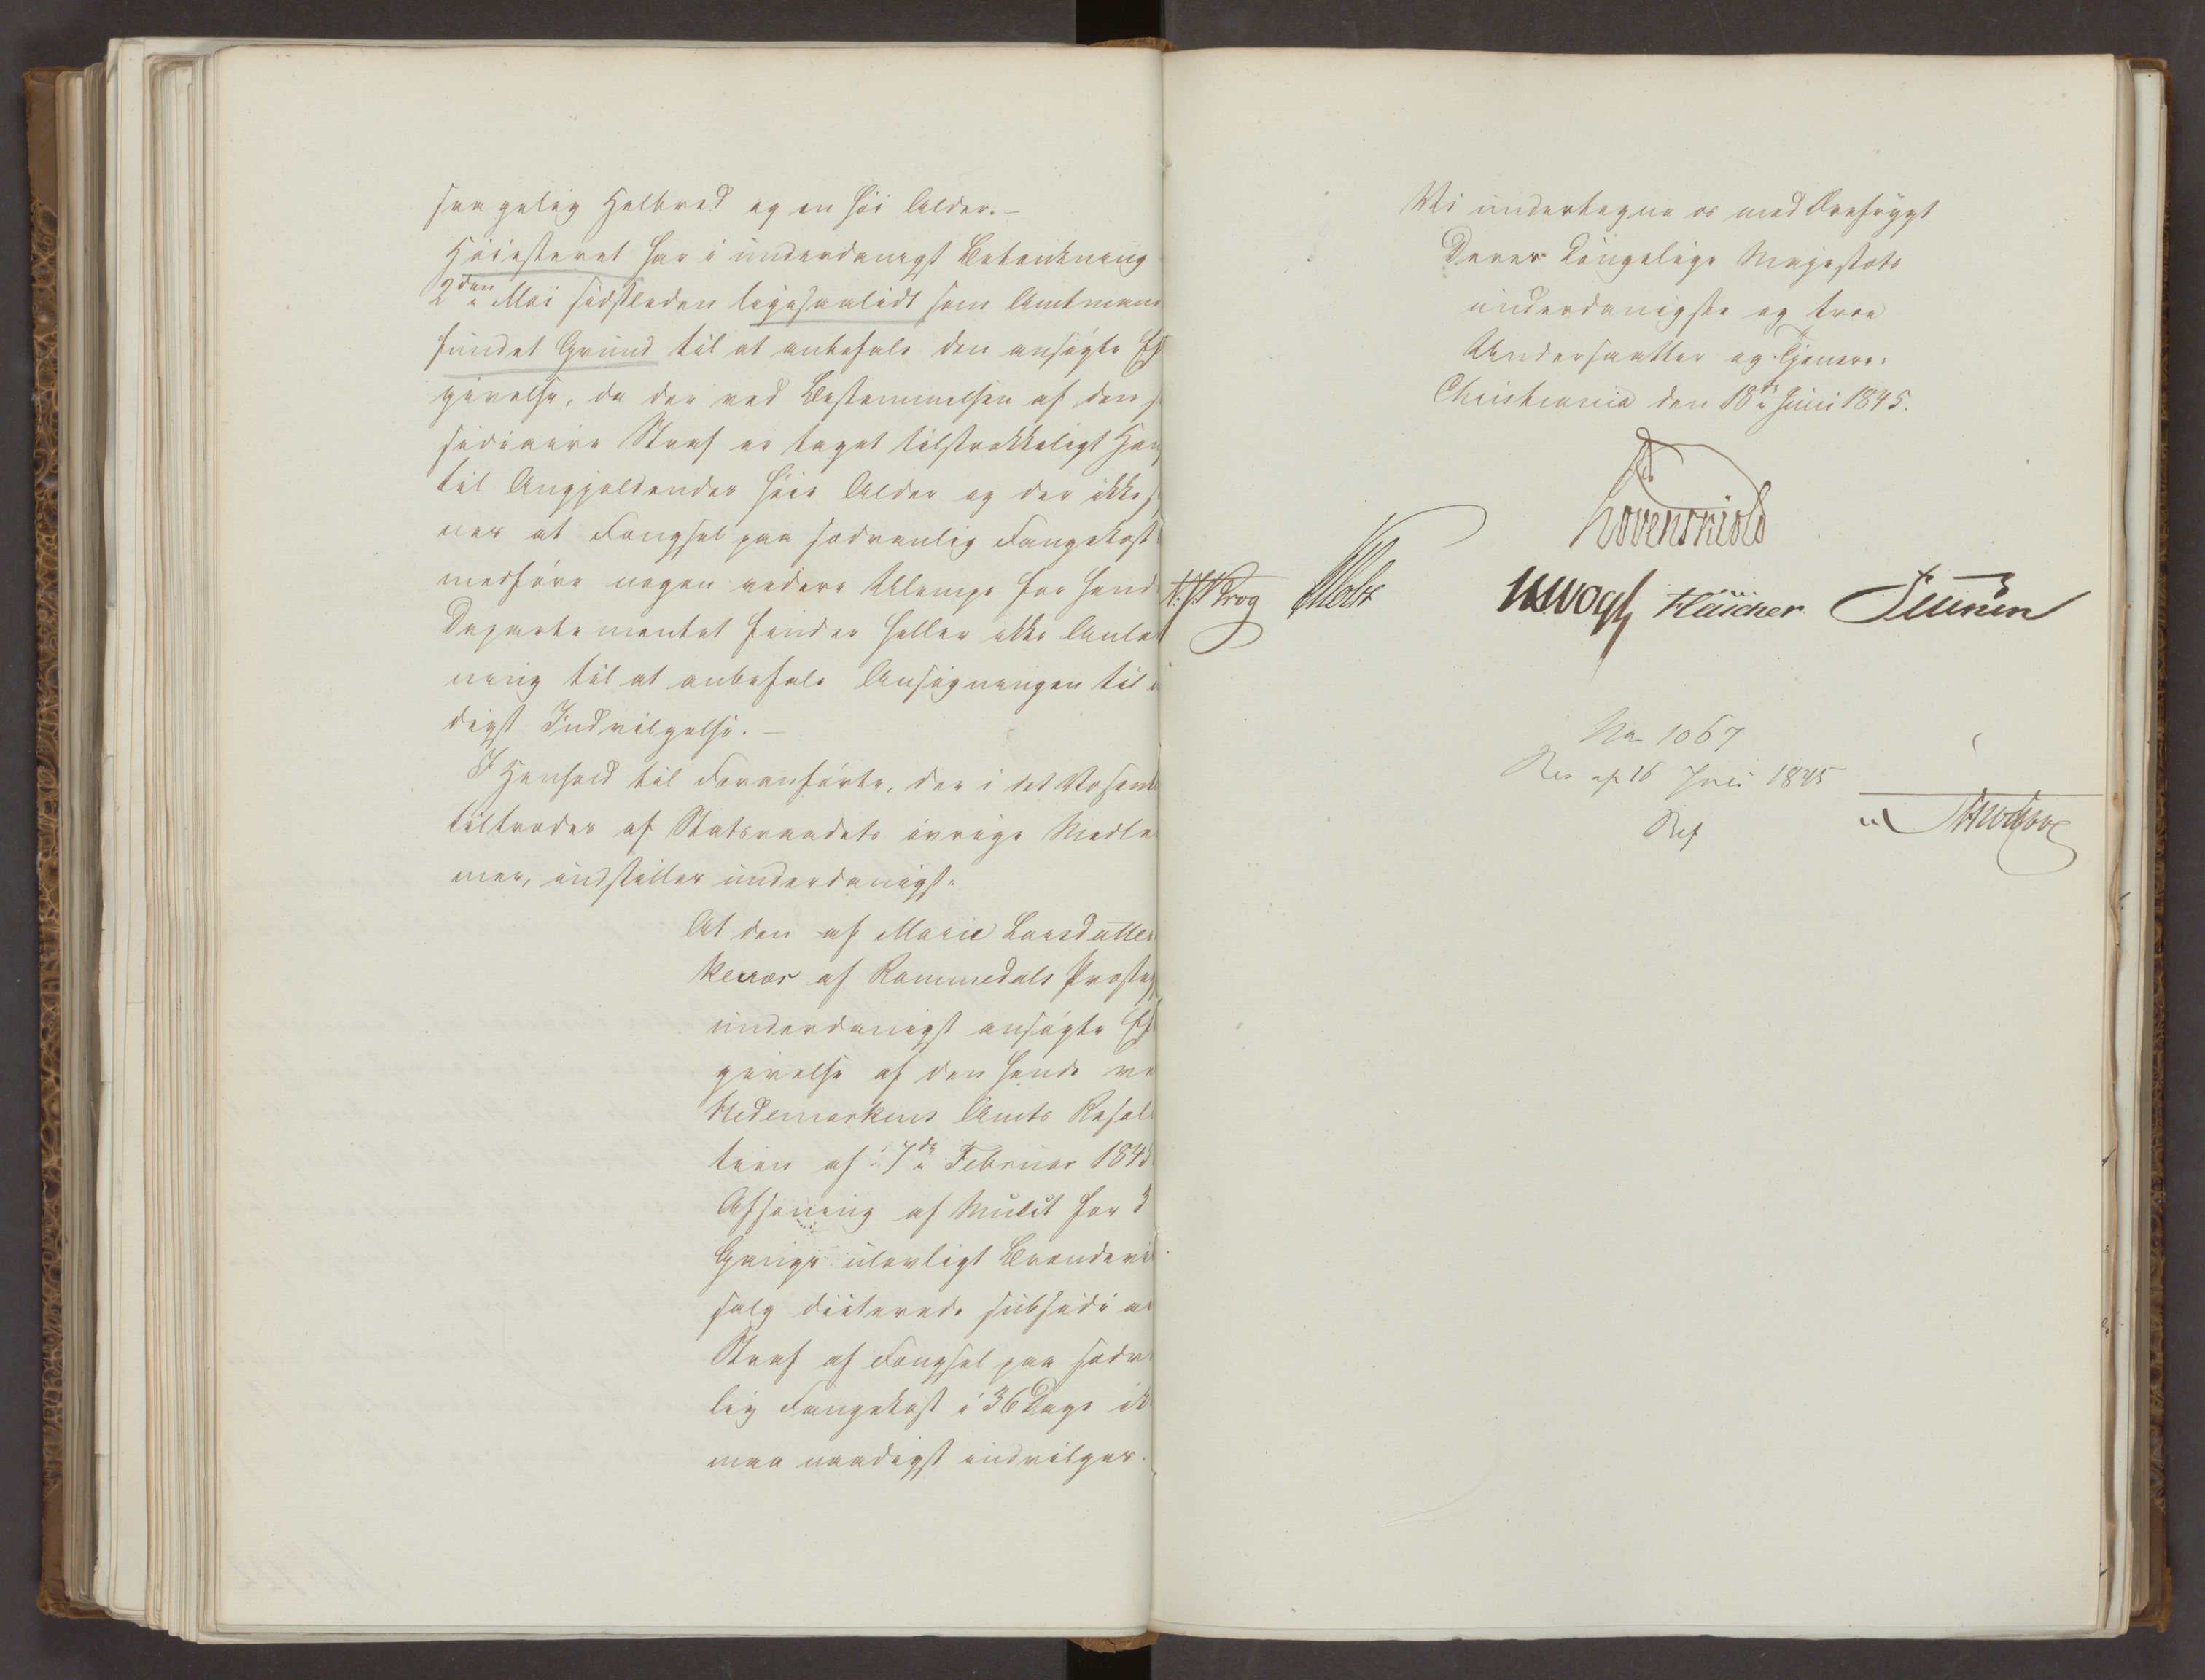 svagelig Helbred og en høi Alder.-
Høiesteret har i underdanigst Betænkning
2den Mai sidstleden ligesaalidt som Amtmand
fundet Grund til at anbefale den ansøgte Ef
givelse, da der ved Bestemmelsen af den s
sidiaire Straf er taget tilstrækkeligt Hen
til Angjeldendes høie Alder og der ikke s
nes at Fængsel paa sædvanlig Fangekost
medføre nogen videre Ulempe for hende
Departementet finder heller ikke Anled
ning til at anbefale Ansøgningen til n
digst Indvilgelse. -
I Henhold til Foranførte, der i det Væsent
tiltrædes af Statsraadets øvrige Medle
mer, indstilles underdanigst:
At den af Marie Larsdatter
Kerrær af Rommedals Præsteg
underdanigst ansøgte Ef
givelse af den hende ve
Hedemarkens Amts Resol
tion af 7de Februar 1845
Afsoning af Mulct for 3
Gange ulovligt Brændevi
salg dicterede subsidia
Straf af Fængsel paa sædv
lig Fangekost i 36 Dage ik
maa naadigst indvilges.
Vi undertegne os med Ærefrygt
Deres Kongelige Majestæts
underdanigste og troe
Undersaatter og Tjenere.
Christiania den 18de Juni 1845.
Løvenskiold
N. J. Krog
JHVogt Fleischer
No 1067
Res af 16 Juli 1845
Ref